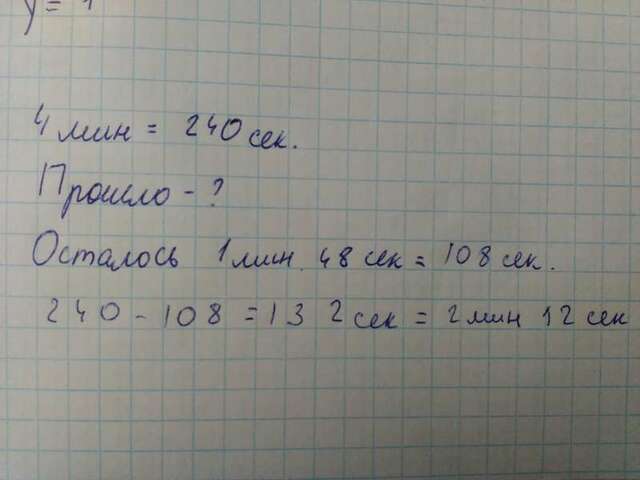 y = 1
4 мин = 240 сек.
Прошло - ?
Осталось 1 мин. 48 сек = 108 сек.
240 - 108 = 132 сек = 2 мин 12 сек